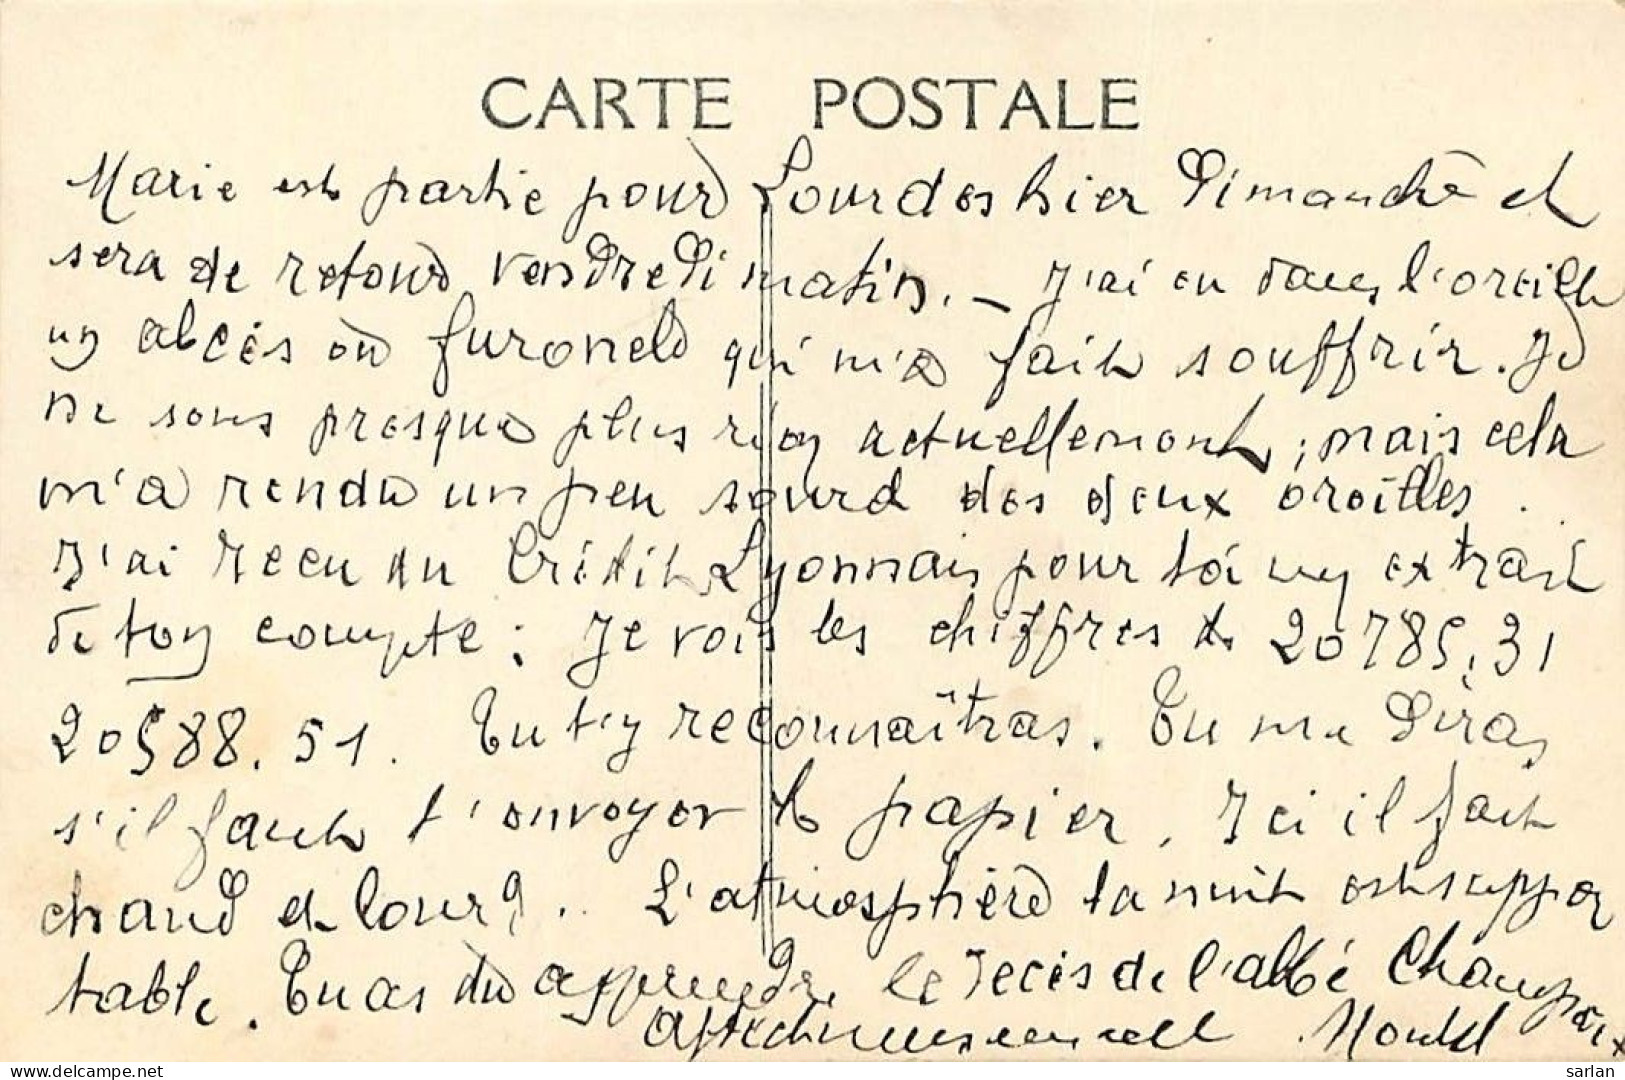 CARTE POSTALE
Marie est partie pour Lourdes hier Dimanche et
sera de retour vendredi matin. – J'ai eu dans l'oreille
un abcès ou furoncle qui m'a fait souffrir. Je
ne sens presque plus rien actuellement, mais cela
m'a rendu un peu sourd des deux oreilles.
J'ai reçu du Crédit Lyonnais pour toi un extrait
de ton compte : Je vois les chiffres de 20785,31
20588.51. Tu t'y reconnaîtras. Tu me diras
s'il faut t'envoyer le papier. Ici il fait
chaud et lourd.. L'atmosphère la nuit est suppor
table. Tu as dû apprendre le décès de l'abbé
Affectueusement
sarlan